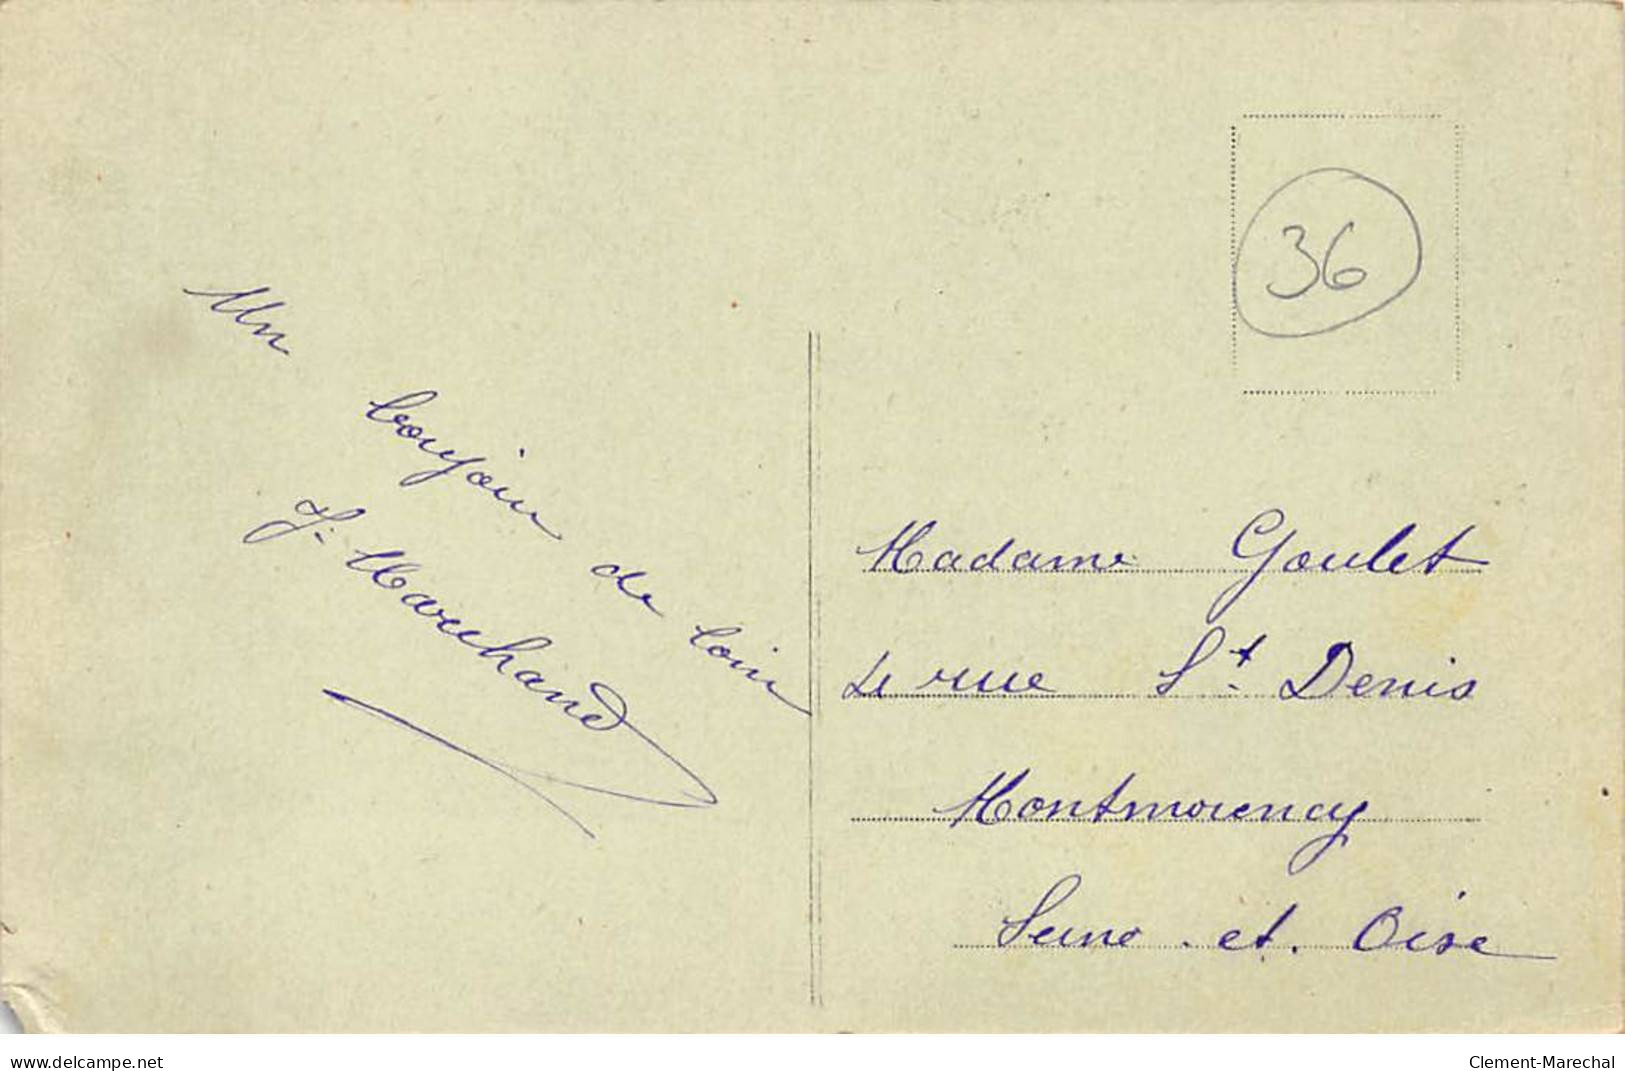 36
Un
bonjour de loin
J. Marchand
Madame Goulet
rue St. Denis
Montmorency
Seine . et . Oise
www.delcampe.net
Clement-Marechal